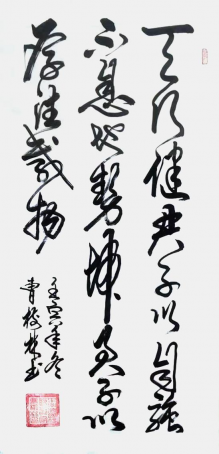 天行健君子以自强
不息地势坤君子以
厚德载物
壬寅年冬
曹俊林书